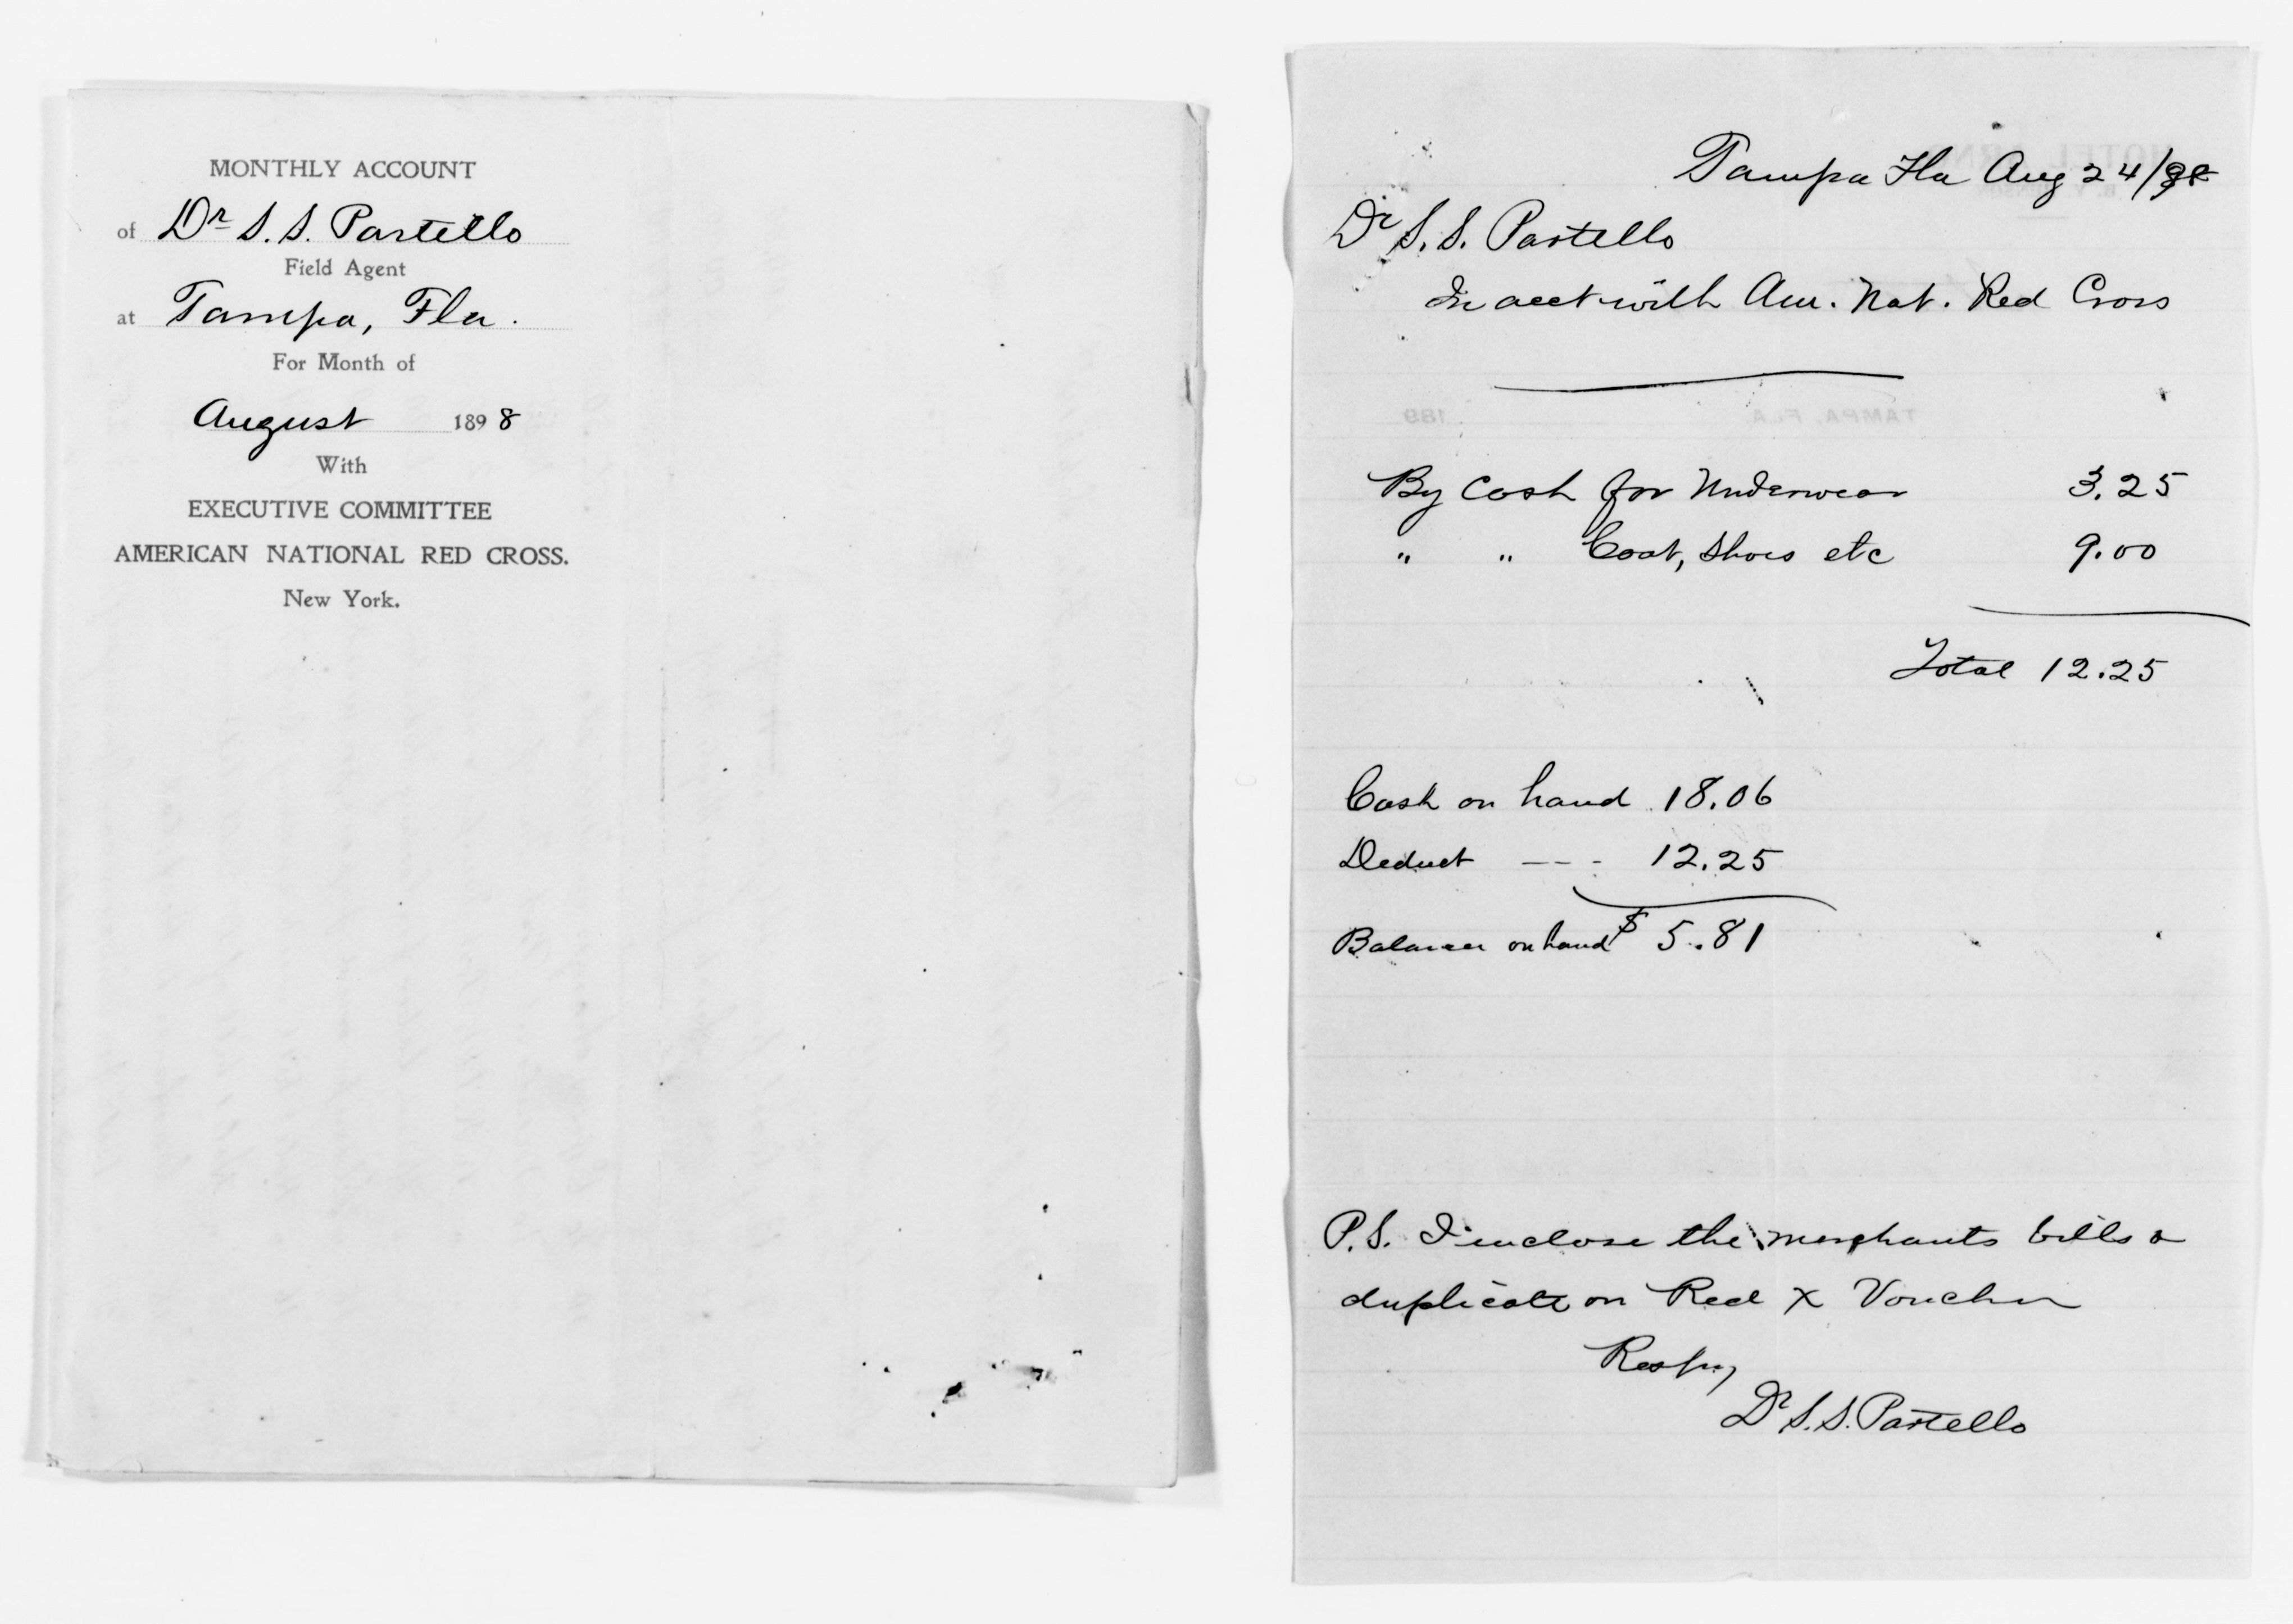 MONTHLY ACCOUNT
of Dr S. S. Partello
Field Agent
at Tampa, Fla.
For Month of
August 1898
With
EXECUTIVE COMMITTEE
AMERICAN NATIONAL RED CROSS.
New York.
Tampa Fla Aug 24/98
Dr S. S. Partello
In acct with Am. Nat. Red Cross
TAMPA, FLA. 189
By Cash for Underwear 3.25
" " Coat, Shoes etc 9.00
Total 12.25
Cash on hand 18.06
Deduct --- 12.25
Balance on hand $ 5.81
P.S. I inclose the merchants bills &
duplicate on Red X Voucher
Respy
Dr S. S. Partello